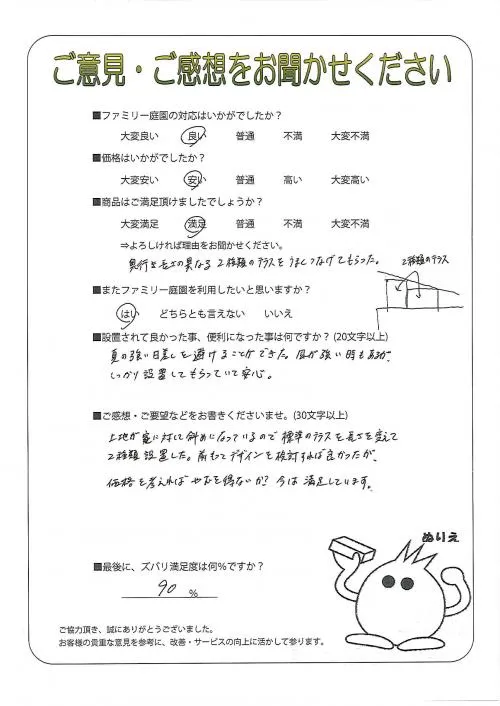 ご意見・ご感想をお聞かせください
■ファミリー庭園の対応はいかがでしたか？
大変良い 良い 普通 不満 大変不満
■価格はいかがでしたか？
大変安い 安い 普通 高い 大変高い
■商品はご満足頂けましたでしょうか？
大変満足 満足 普通 不満 大変不満
⇒よろしければ理由をお聞かせください。
奥行と長さの異なる2種類のテラスをうまくつなげてもらった。
2種類のテラス
■またファミリー庭園を利用したいと思いますか？
はい どちらとも言えない いいえ
■設置されて良かった事、便利になった事は何ですか？(20文字以上)
夏の強い日差しを避けることができた。風が強い時もあるが、
しっかり設置してもらっていて安心。
■ご感想・ご要望などをお書きくださいませ。(30文字以上)
土地が家に対して斜めになっているので標準のテラスを長さを変えて
2種類設置した。前もってデザインを検討すれば良かったが、
価格を考えればやむを得ないか？今は満足しています。
ぬりえ
■最後に、ズバリ満足度は何％ですか？
90 %
ご協力頂き、誠にありがとうございました。
お客様の貴重な意見を参考に、改善・サービスの向上に活かして参ります。